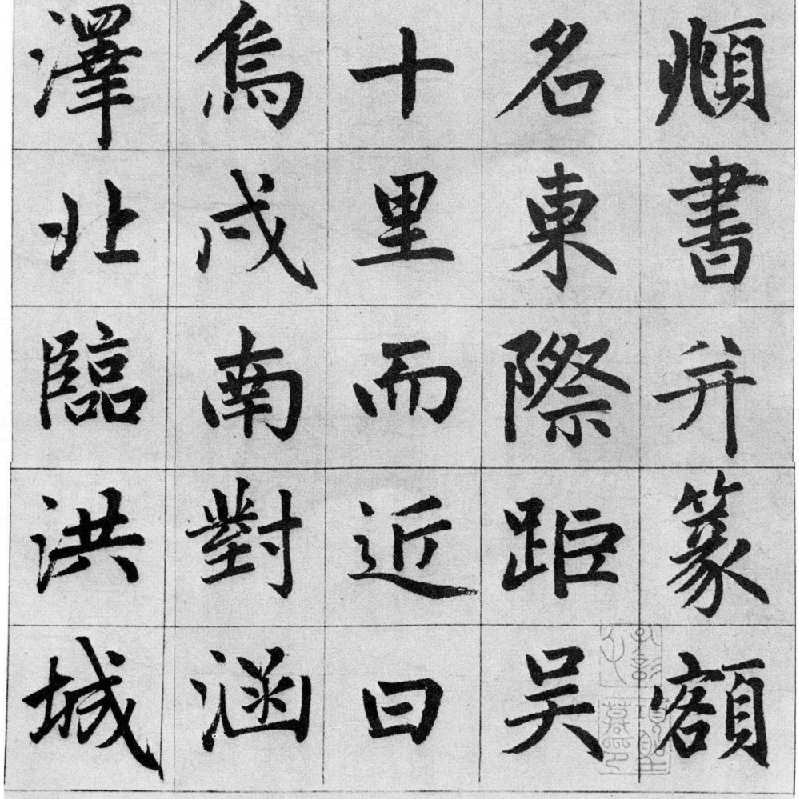 頫書并篆額
名東際距吴
十里而近曰
烏戍南對涵
澤北臨洪城